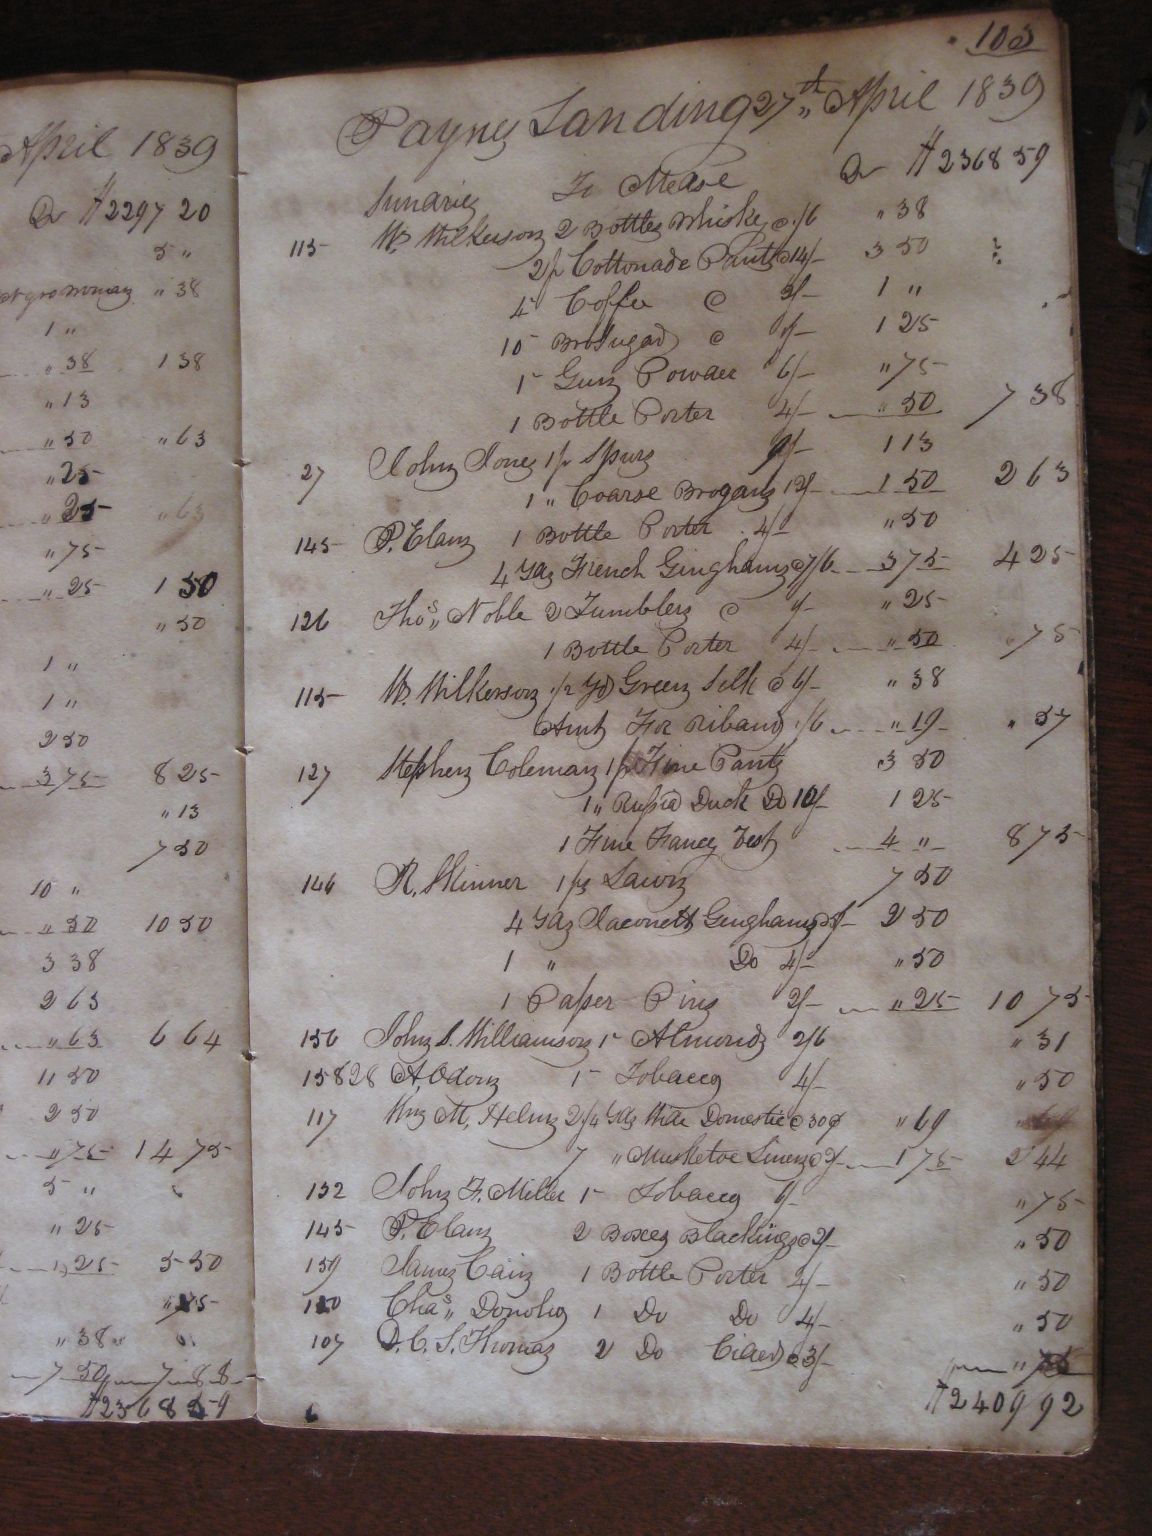 April 1839
Dr $2297 20
5 "
negro woman " 38
1 "
" 38 1 38
" 13
" 50 " 63
" 25
" 25 " 63
" 75
" 25 1 50
" 50
1 "
1 "
2 50
3 75 8 25
" 13
7 50
10 "
" 50 10 50
3 38
2 63
" 63 6 64
11 50
2 50
" 75 14 75
5 "
" 25
" 25 5 50
" 75
" 38
7 50 7 88
$2368 59
103
Paynes Landing 27th April 1839
Sundries To Mdse Dr $2368 59
115 W. Wilkerson 2 Bottles Whiskey @ 1/6 " 38
2 pr Cottonade Pants @ 14/- 3 50
4 Coffee @ 2/- 1 "
10 Bro Sugar @ 1/- 1 25
1 Gun Powder 6/- " 75
1 Bottle Porter 4/- " 50 7 38
27 John Jones 1 pr Spurs 9/- 1 13
1 " Coarse Brogans 12/- 1 50 2 63
145 P. Elam 1 Bottle Porter 4/- " 50
4 Yds French Ginghams @ 7/6 3 75 4 25
126 Thos. Noble 2 Tumblers @ 1/- " 25
1 Bottle Porter 4/- " 50 " 75
115 W. Wilkerson 1/2 Yd Green Silk @ 6/- " 38
Amt For Riband 1/6 " 19 " 57
127 Stephen Coleman 1 pr Fine Pants 3 50
1 " Russia Duck Do 10/- 1 25
1 Fine Fancy Vest 4 " 8 75
146 R. Skinner 1 ps Lawn 7 50
4 Yds Jaconett Ginghams @ 5/- 2 50
1 " Do 4/- " 50
1 Paper Pins 2/- " 25 10 75
156 John S. Williamson 1 Almonds 2/6 " 31
158 28 A. Odom 1 Tobacco 4/- " 50
117 Wm M. Helm 2 1/4 Yds Wide Domestic @ 30¢ " 69
7 " Musketoe Linen @ 2/- 1 75 2 44
132 John F. Miller 1 Tobacco 6/- " 75
145 P. Elam 2 Boxes Blacking @ 2/- " 50
159 James Cain 1 Bottle Porter 4/- " 50
120 Chas. Donoho 1 Do Do 4/- " 50
107 D. C. S. Thomas 2 Do Cider @ 3/- " 75
$2409 92